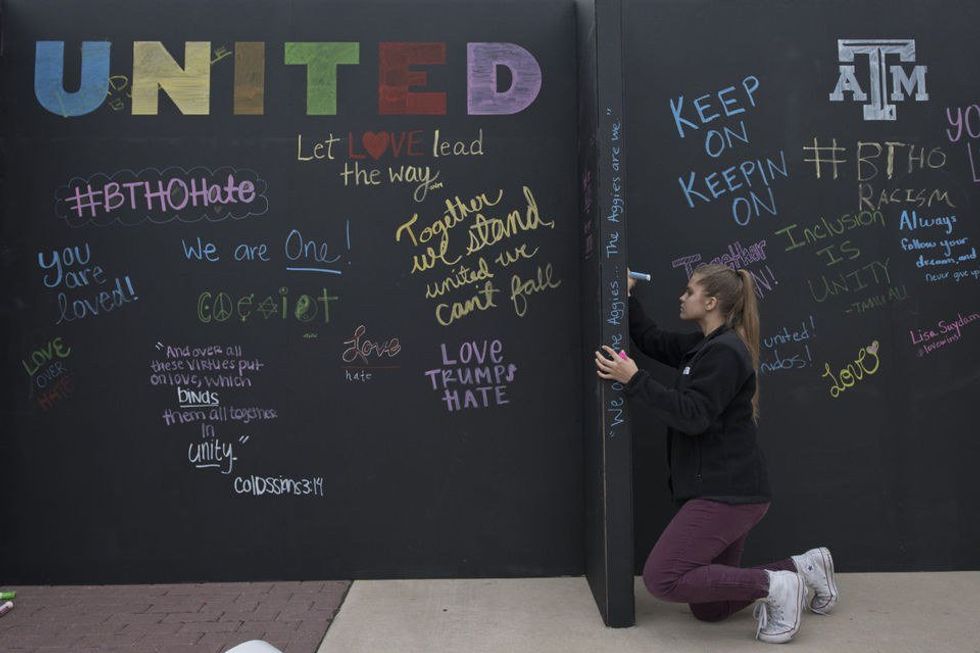 UNITED
Let LOVE lead
the way
#BTHOHate
Together
we stand,
united we
can't fall
you
are
loved!
We are One!
coexist
LOVE
OVER
HATE
Love
hate
"And over all
these virtues put
on love, which
binds
them all together
in
unity."
Colossians 3:14
LOVE
TRUMPS
HATE
"We are the Aggies... The Aggies are we"
ATM
KEEP
ON
KEEPIN
ON
#BTHO
RACISM
YO
L
Together
Inclusion
IS
UNITY
-TAMU
Always
follow your
dream, and
never give
united!
Love
Lisa Suydam
#lovewins!